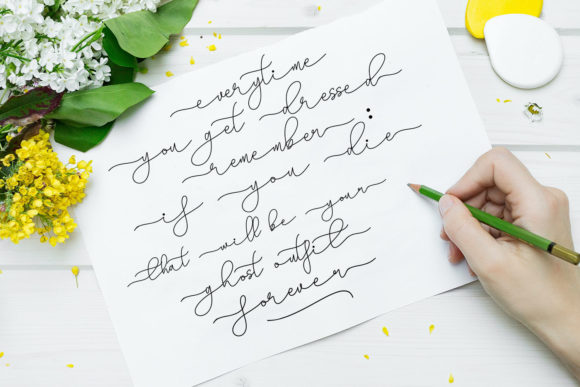 everytime
you get dressed
remember :
if you die
that will be your
ghost outfit
forever